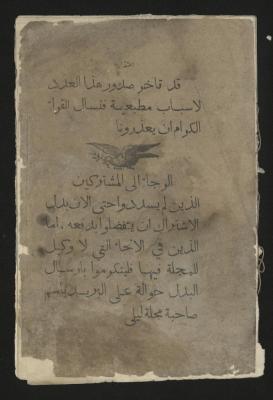 اعتذار
قد تأخر صدور هذا العدد
لاسباب مطبعية فنسأل القراء
الكرام ان يعذرونا
الرجاء الى المشتركين
الذين لم يسددوا حتى الان بدل
الاشتراك ان يتفضلوا بدفعه . اما
الذين في الانحاء التي لا وكيل
للمجلة فيها فليتكرموا بارسال
البدل حوالة على البريد باسم
صاحبة مجلة ليلى